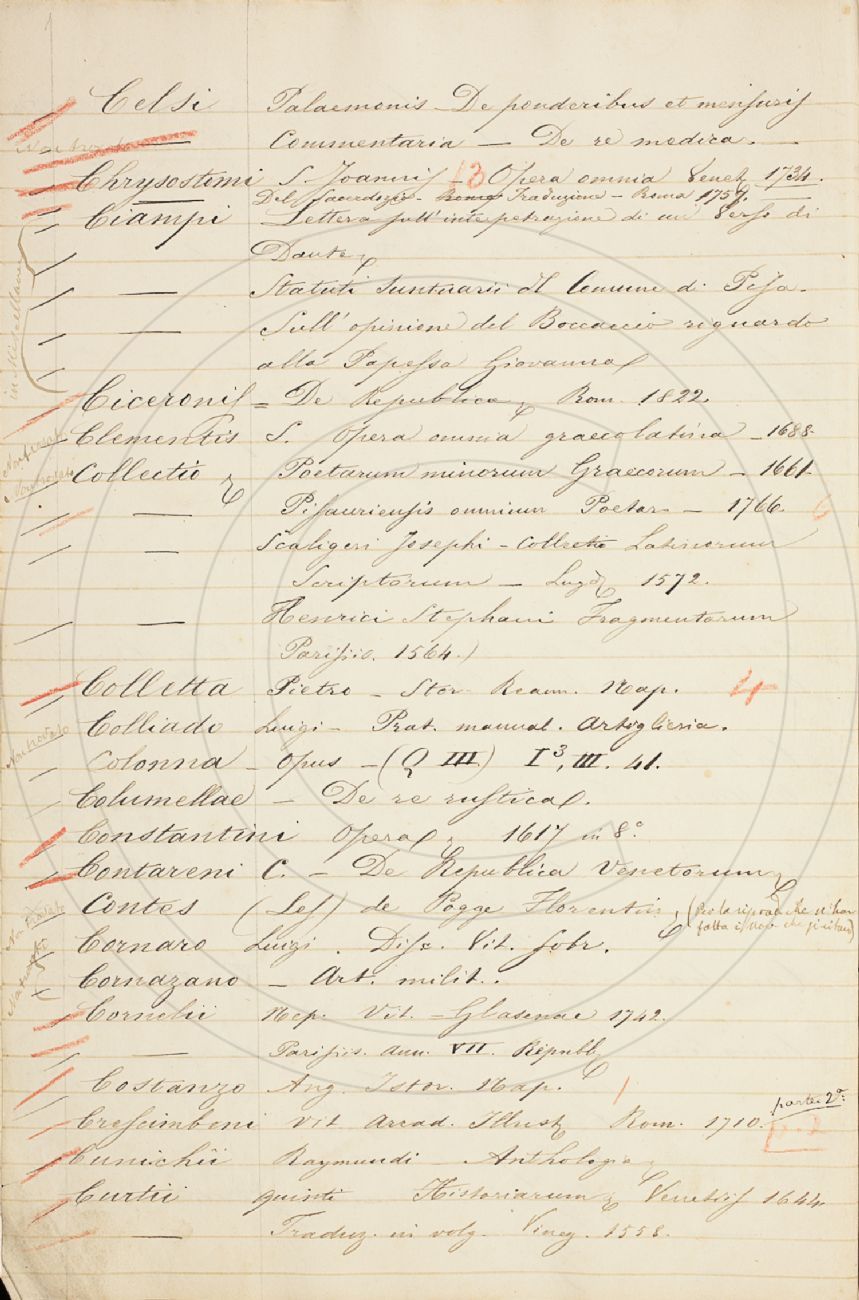 Celsi Palaemonis - De ponderibus et mensuris
— Commentaria — De re medica. —
Chrysostomi S. Joannis 13 Opera omnia Venet. 1734.
Del Sacerdozio - Traduzione - Roma 1757.
Ciampi Lettera sull'interpetrazione di un Verso di
Dante
— Statuti Suntuarii del Comune di Pisa.
— Sull' opinione del Boccaccio riguardo
alla Papessa Giovanna
in Miscellanea
Ciceronis = De Republica Rom. 1822.
Clementis S. Opera omnia graecolatina - 1688.
Collectio Poetarum minorum Graecorum - 1661.
— Pisauriensis omnium Poetar - 1766. 6
— Scaligeri Josephi - Collectio Latinorum
Scriptorum — Lugd. 1572.
— Henrici Stephani Fragmentorum
Parisiis. 1564.)
Colletta Pietro - Stor. Ream. Nap. 4
Colliado Luigi - Prat. manual. Artiglieria.
Non trovato
Colonna - Opus - (Q III) I 3, III. 41.
Columellae - De re rustica.
Constantini Opera 1617 in 8°
Contareni C. - De Republica Venetorum
Contes (Les) de Pogge Florentin,
Cornaro Luigi. Dis. Vit. sobr.
Cornazano - Art. milit..
Cornelii Nep. Vit. = Glasenae 1742.
— Parisiis. Ann. VII. Republ.
Costanzo Ang. Istor. Nap. 1
parte 2a
Crescimbeni Vit. Arcad. Illust. Rom. 1710.
Cunichii Raymundi - Anthologia
Curtii Quinti Historiarum Venetiis 1644
— Traduz. in volg. Vineg. 1558.